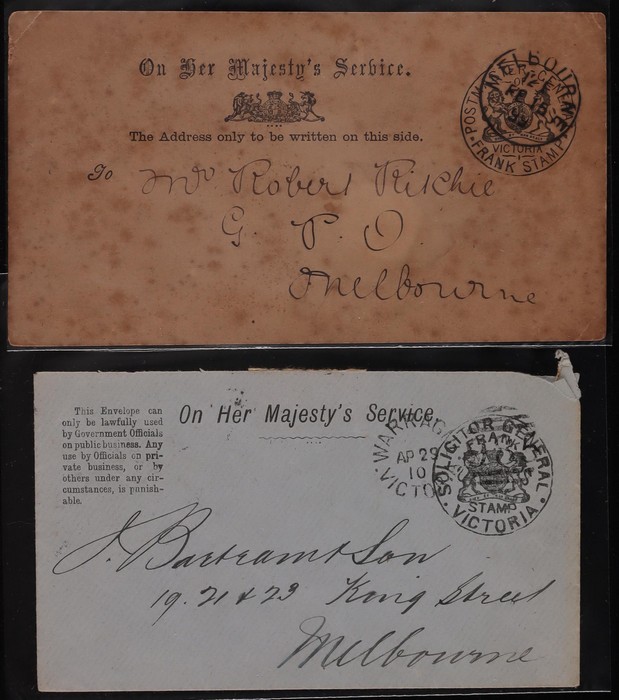 On Her Majesty's Service.
The Address only to be written on this side.
To Mr Robert Ritchie
G. P. O.
Melbourne
MELBOURNE
FRANK STAMP
VICTORIA
This Envelope can
only be lawfully used
by Government Officials
on public business. Any
use by Officials on pri-
vate business, or by
others under any cir-
cumstances, is punish-
able.
On Her Majesty's Service
AP 29
10
SOLICITOR GENERAL
FRANK
STAMP
VICTORIA
J. Bartram & Son
19. 21 & 23 King Street
Melbourne